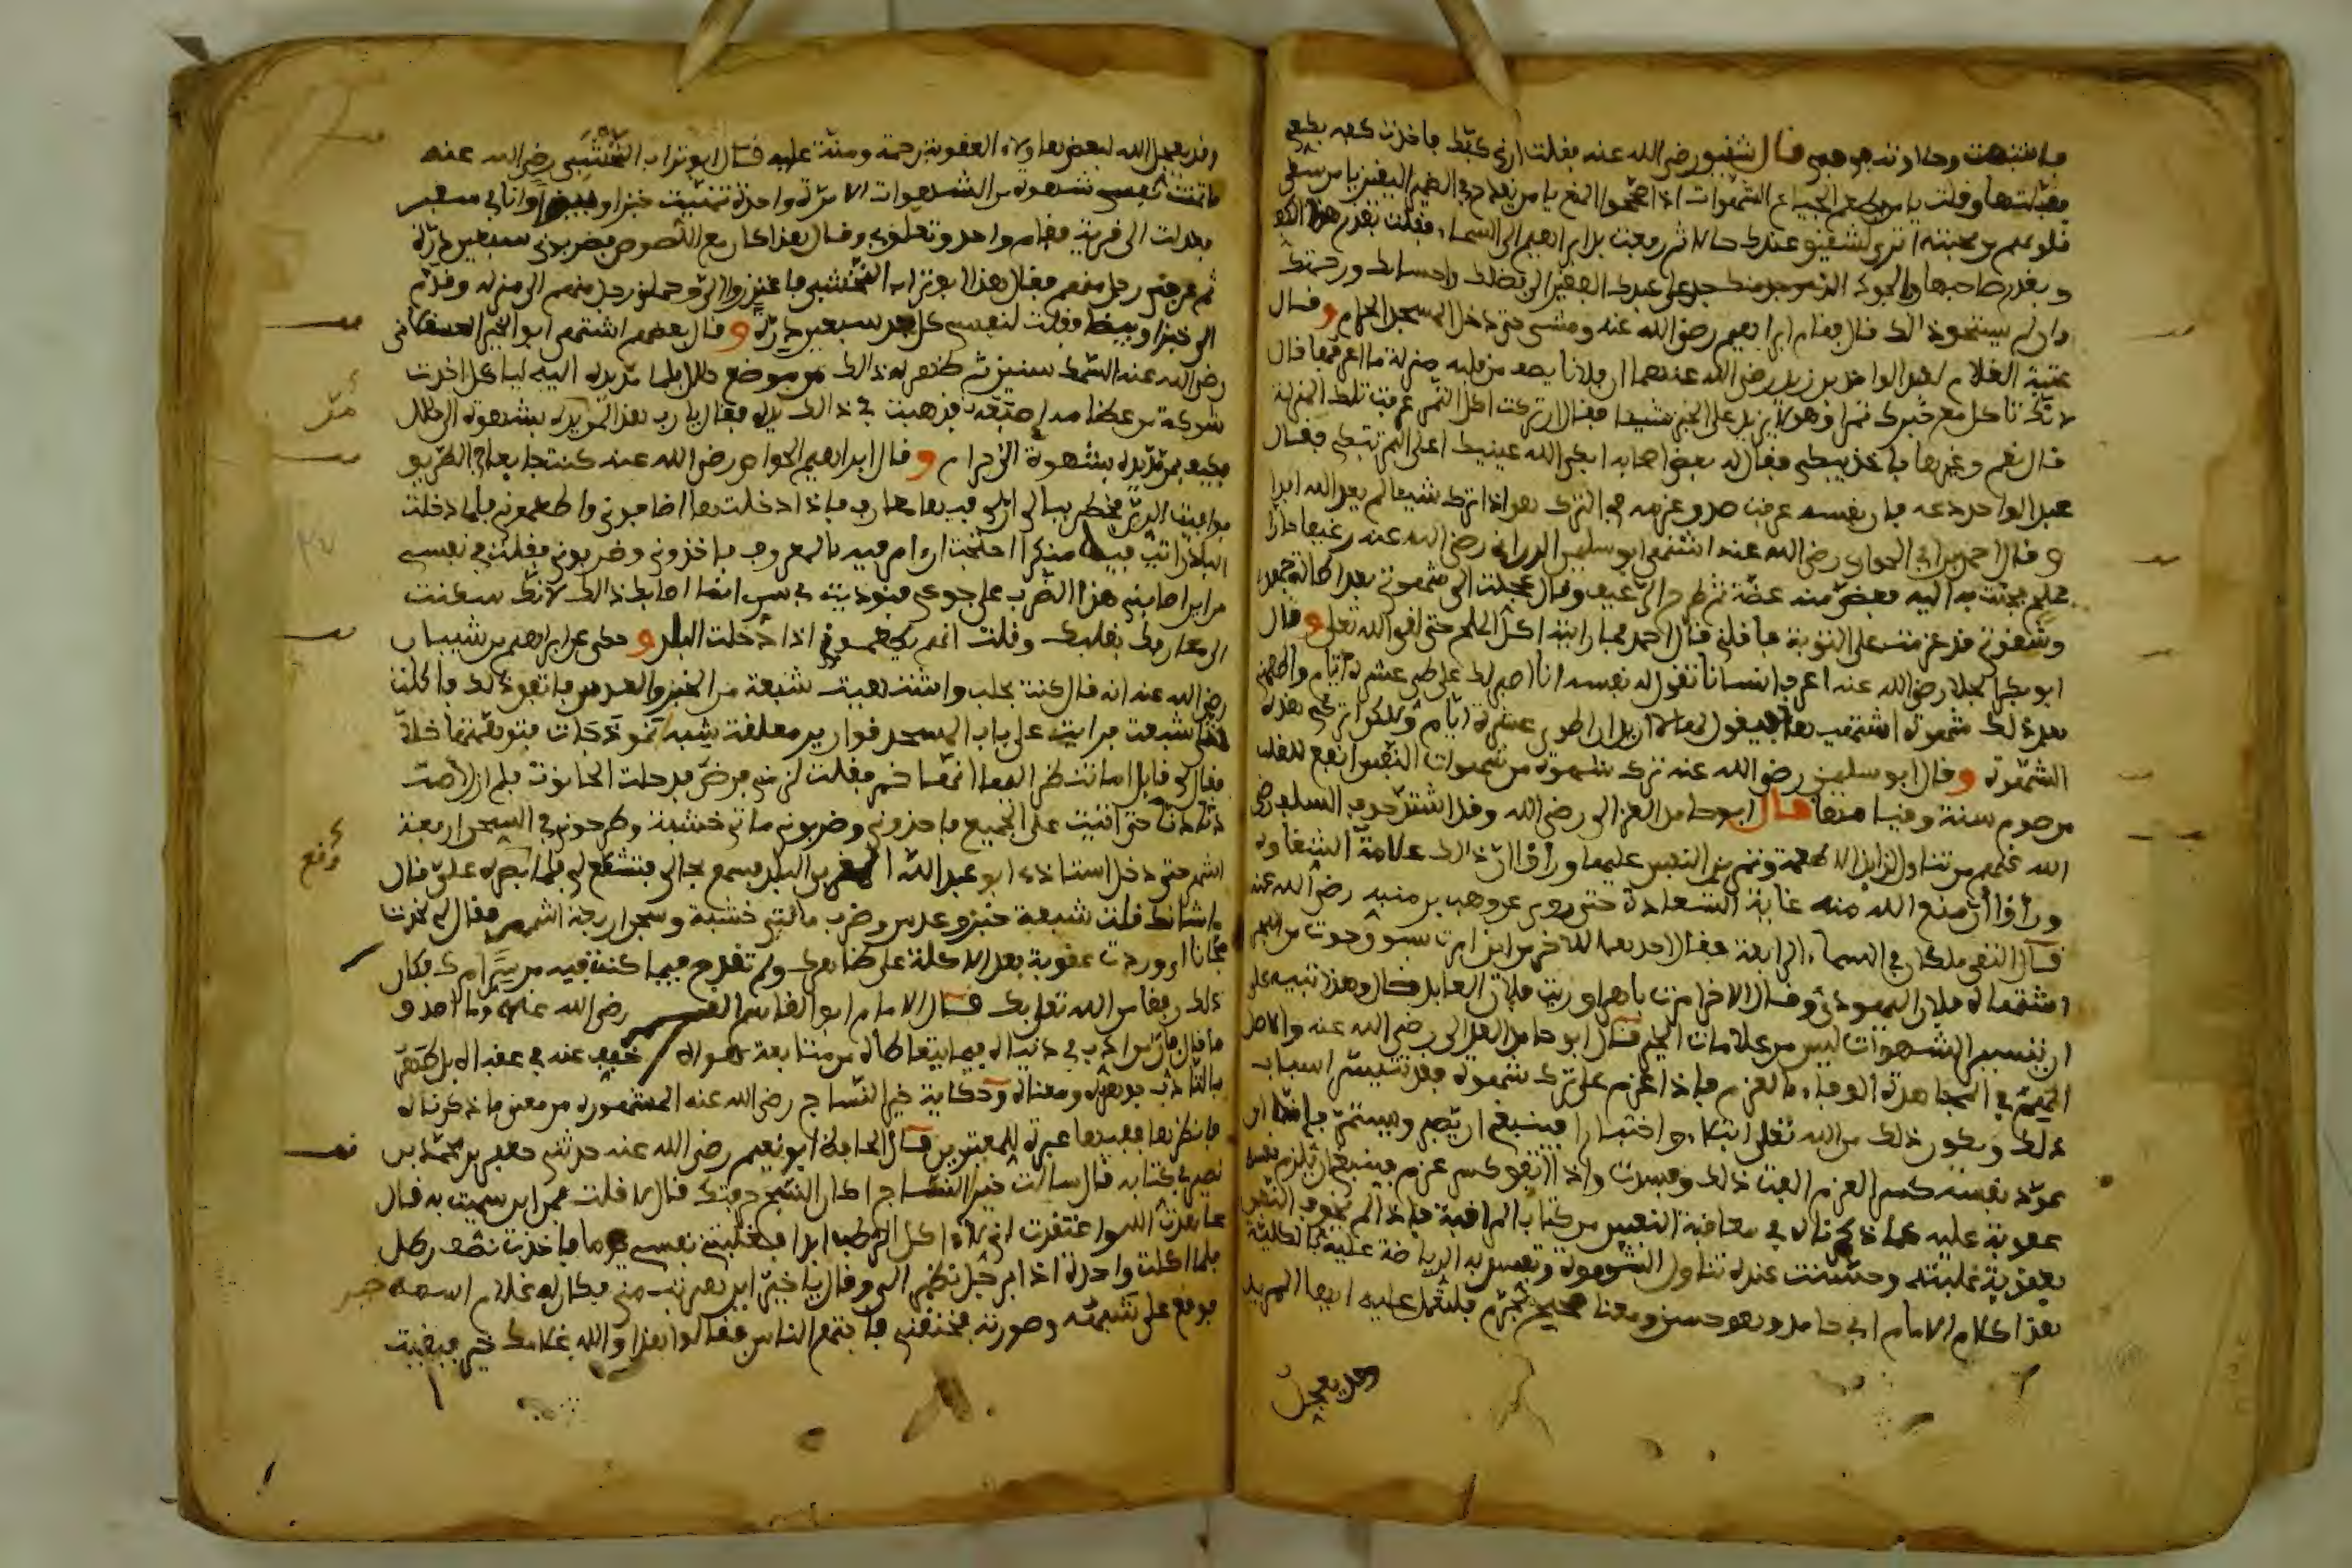 فاشتهت وحادثته في همي قال شقيق رضي الله عنه فقلت أرني كفك فأخذت كفه بكفي
فقبلتها وقلت يا من يطعم الجياع الشهوات اذا صححوا المنع يا من يقدح في الضمير اليقين يا من سقى
قلوبهم من محبته اترى لشقيق عندك حالا ثم رفعت يد ابراهيم الى السماء وقلت بقدر هذا الكف
وبقدر صاحبها والجود الذي وجد منك جد على عبدك الفقير الى فضلك واحسانك ورحمتك
وان لم يستحق ذالك قال فقام ابراهيم رضي الله عنه ومشى حتى دخل المسجد الحرام وقال
عتبة الغلام لعبد الواحد بن زيد رضي الله عنهما ان فلانا يصف من قلبه منزلة ما اعرفها قال
لانك تاكل مع خبزك تمرا وهو لا يزيد على الخبز شيئا فقال ان تركت اكل التمر عرفت تلك المنزلة
قال نعم وغيرها فأخذ يبكي فقال له بعض اصحابه ابكى الله عينيك اعلى التمر تبكي فقال
عبد الواحد دعه فان نفسه عرفت صدق عزمه في الترك هو اذا ترك شيئا لم يعد اليه ابدا
وقال احمد بن ابي الحواري رضي الله عنه اشتهى ابو سليمن الداراني رضي الله عنه رغيفا حارا
بملح فجئت به اليه فعض منه عضة ثم طرح الرغيف وقال عجلت الى شهوتي بعد اطالة جهدي
وشقوتي قد عزمت على التوبة فاقلني قال احمد فما رايته اكل الملح حتى لقي الله تعلى وقال
ابو بكر الجلا رضي الله عنه اعرف انسانا تقول له نفسه انا اصبر لك على طي عشرة ايام واطعمني
بعد ذلك شهوة اشتهيها فيقول لها لا اريد ان اطوي عشرة ايام ولكن اتركي هذه
الشهوة وقال ابو سليمن رضي الله عنه ترك شهوة من شهوات النفس انفع للقلب
من صوم سنة وقيامها قال ابو حامد الغزالي رضي الله وقد اشتد خوف السلف رضي
الله عنهم من تناول لذايذ الاطعمة وتمرين النفس عليها ورأوا ان ذالك علامة الشقاوة
ورأوا ان منع الله منه غاية السعادة حتى روي عن وهب بن منبه رضي الله عنه
قال التقى ملكان في السماء الرابعة فقال احدهما للآخر من اين امرت بسوق حوت من البحر
اشتهاه فلان اليهودي وقال الاخر امرت باهراق زيت فلان العابد فكان وهذا تنبيه على
ان تيسير الشهوات ليس من علامات الخير قال ابو حامد الغزالي رضي الله عنه والاصل
المهم في المجاهدة الوفاء بالعزم فاذا عزم على ترك شهوة فقد تتيسر اسباب
ذلك ويكون ذلك من الله تعلى ابتلاء واختبارا فينبغي ان يصبر ويستمر فانه ان
عود نفسه كسر العزم الفت ذلك وفسدت واذا اتفق كسر عزم فينبغي ان يلزم نفسه
عقوبة عليه كما ذكرناه في معاقبة النفس من كتاب المراقبة فاذا لم يخوف النفس
بعقوبة غلبته وحسنت عنده تناول الشهوة وتفسد به الرياضة عليه بالكلية
هذا كلام الامام ابي حامد وهو حسن ومعناه صحيح مجرب فليعمل عليه ايها المريد
وقد يعجل
وقد يعجل الله لبعض هاولاء العقوبة رحمة ومنة عليه قال ابو تراب النخشبي رضي الله عنه
ما تمنت نفسي شهوة من الشهوات الا مرة واحدة تمنيت خبزا وبيضا وانا في سفر
فعدلت الى قرية فقام واحد وتعلق بي وقال هذا كان مع اللصوص فضربوني سبعين درة
ثم عرفني رجل منهم فقال هذا ابو تراب النخشبي فاعتذروا الي وحملني رجل منهم الى منزله وقدم
الي خبزا وبيضا فقلت لنفسي كل بعد سبعين درة وقال بعضهم اشتهى ابو الخير العسقلاني
رضي الله عنه السمك سنين ثم ظهر له ذالك من موضع حلال فلما مد يده اليه لياكل اخذت
شوكة من عظامه اصبعه فذهبت في ذالك يده فقال يا رب هذا لمن مد يده بشهوة الى حلال
فكيف بمن مد يده بشهوة الى حرام وقال ابراهيم الخواص رضي الله عنه كنت جايعا في الطريق
فوافيت الري فخطر ببالي ان لي فيها معارف فاذا دخلت بها اضافوني واطعموني فلما دخلت
البلد رايت فيه منكرا احتجت ان امر فيه بالمعروف فاخذوني وضربوني فقلت في نفسي
من اين اصابني هذا الضرب على جوعي فنوديت في سري انما اصابك ذالك لانك سكنت
الى معارفك بقلبك وقلت انهم يطعموني اذا دخلت البلد وحكي عن ابراهيم بن شيبان
رضي الله عنه انه قال كنت بحلب واشتهيت شبعة من الخبز والعدس فاتفق ذلك فاكلت
فلما شبعت فرايت على باب المسجد قوارير معلقة شبه انموذجات فتوهمتها خلا
فقال لي قايل اما تنظر اليها انها خمر فقلت لزمني فرض فدخلت الحانوت فلم ازل اصب
دنا دنا حتى اتيت على الجميع فاخذوني وضربوني ماتي خشبة وطرحوني في السجن اربعة
اشهر حتى دخل استاذي ابو عبد الله المغربي البلد فسمع بحالي فتشفع لي فلما بصره علي قال
ما شانك قلت شبعة خبز وعدس وضرب مائتي خشبة وسجن اربعة اشهر فقال لي نجوت
مجانا اذ وردت عقوبة هذه الاكلة على ظاهرك ولم تقدح فيما كنت فيه من سر امرك فكان
ذلك رفقا من الله تعلى بك قال الامام ابو القاسم القشيري رضي الله عنه وما احد و
بالتادب بوهنه ومعناه وحكاية خير النساج رضي الله عنه المشهورة من معنى ما ذكرناه
فانظرها ففيها عبرة للمعتبرين قال الحافظ ابو نعيم رضي الله عنه حدثني جعفر بن محمد بن
نصير في كتابه قال سالت خير النساج اكان النسج حرفتك قال لا قلت فمن اين سميت به قال
عاهدت الله واعتقدت اني لا اكل الرطب ابدا فغلبتني نفسي يوما فاخذت نصف رطل
فلما اكلت واحدة اذا برجل نظر الي وقال يا خير اين هربت مني وكان له غلام اسمه خير
فوقع علي شبهه وصورته فخنقني فاجتمع الناس فقالوا هذا والله غلامك خير فبقيت